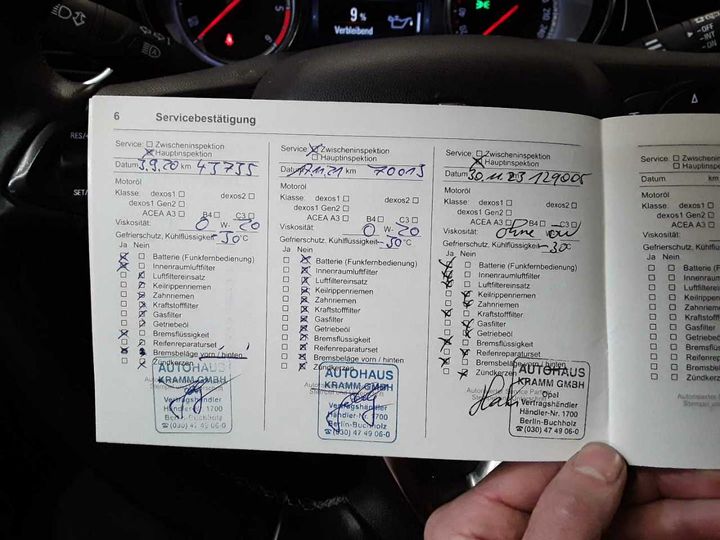 9 %
Verbleibend
OFF
INT
ON
RES/
SET/
6 Servicebestätigung
Service: Zwischeninspektion
Hauptinspektion
Datum 3.9.20 km 43735
Motoröl
Klasse: dexos1 dexos2
dexos1 Gen2
ACEA A3 B4 C3
Viskosität: 0 W- 20
Gefrierschutz, Kühlflüssigkeit -30°C
Ja Nein
Batterie (Funkfernbedienung)
Innenraumluftfilter
Luftfiltereinsatz
Keilrippenriemen
Zahnriemen
Kraftstofffilter
Gasfilter
Getriebeöl
Bremsflüssigkeit
Reifenreparaturset
Bremsbeläge vorn / hinten
Zündkerzen
AUTOHAUS
KRAMM GMBH
Vertragshändler
Händler-Nr. 1700
Berlin-Buchholz
☎ (030) 47 49 06-0
Service: Zwischeninspektion
Hauptinspektion
Datum 17.11.21 km 70013
Motoröl
Klasse: dexos1 dexos2
dexos1 Gen2
ACEA A3 B4 C3
Viskosität: 0 W- 20
Gefrierschutz, Kühlflüssigkeit -30°C
Ja Nein
Batterie (Funkfernbedienung)
Innenraumluftfilter
Luftfiltereinsatz
Keilrippenriemen
Zahnriemen
Kraftstofffilter
Gasfilter
Getriebeöl
Bremsflüssigkeit
Reifenreparaturset
Bremsbeläge vorn / hinten
Zündkerzen
AUTOHAUS
KRAMM GMBH
Vertragshändler
Händler-Nr. 1700
Berlin-Buchholz
☎ (030) 47 49 06-0
Service: Zwischeninspektion
Hauptinspektion
Datum 30.11.23 129005
Motoröl
Klasse: dexos1 dexos2
dexos1 Gen2
ACEA A3 B4 C3
Viskosität: ohne
Gefrierschutz, Kühlflüssigkeit -30°C
Ja Nein
Batterie (Funkfernbedienung)
Innenraumluftfilter
Luftfiltereinsatz
Keilrippenriemen
Zahnriemen
Kraftstofffilter
Gasfilter
Getriebeöl
Bremsflüssigkeit
Reifenreparaturset
Bremsbeläge vorn / hinten
Zündkerzen
AUTOHAUS
KRAMM GMBH
Opel
Vertragshändler
Händler-Nr. 1700
Berlin-Buchholz
☎ (030) 47 49 06-0
Service: Zwischeninspektion
Hauptinspektion
Datum km
Motoröl
Klasse: dexos1
dexos1 Gen2
ACEA A3
Viskosität:
Gefrierschutz, Kühlflüssigkeit
Ja Nein
Batterie
Innenraumluftfilter
Luftfiltereinsatz
Keilrippenriemen
Zahnriemen
Kraftstofffilter
Gasfilter
Getriebeöl
Bremsflüssigkeit
Zündkerzen